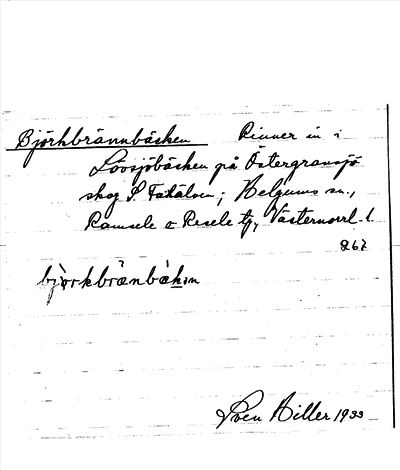 Björkbrännbäcken Rinner in i
Lövsjöbäcken på Östergransjö
skog S. Faxälven; Helgums sn.,
Ramsele o Resele tg, Västernorrl. l.
262
björkbränbäkɘn
Sven Hiller 1933